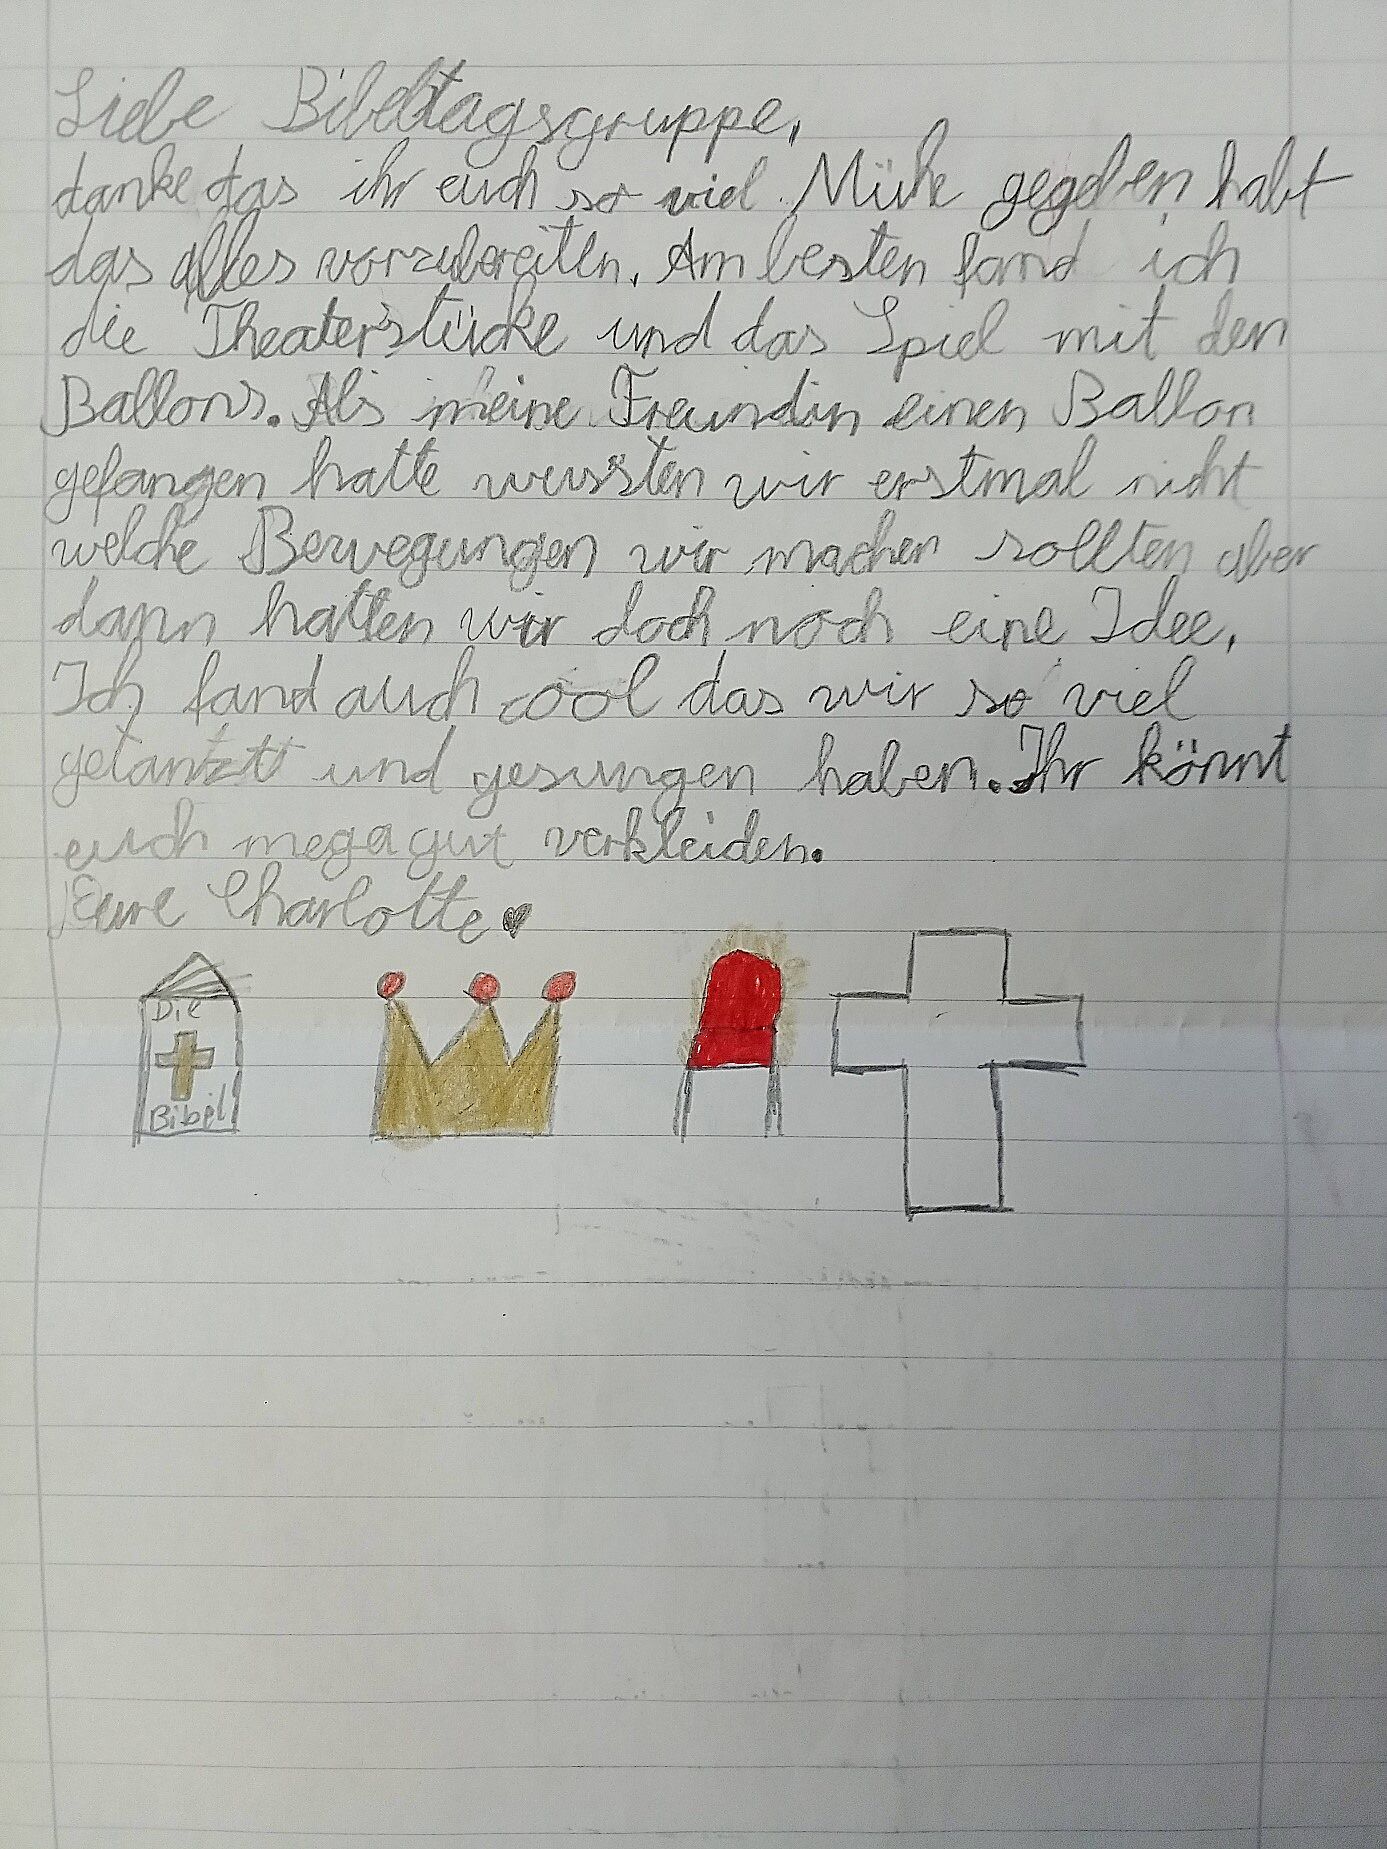 Liebe Bibeltagsgruppe,
danke das ihr euch so viel Mühe gegeben habt
das alles vorzubereiten. Am besten fand ich
die Theaterstücke und das Spiel mit den
Ballons. Als meine Freundin einen Ballon
gefangen hatte wussten wir erstmal nicht
welche Bewegungen wir machen sollten aber
dann hatten wir doch noch eine Idee.
Ich fand auch cool das wir so viel
getantzt und gesungen haben. Ihr könnt
euch mega gut verkleiden.
Eure Charlotte♥
Die
Bibel